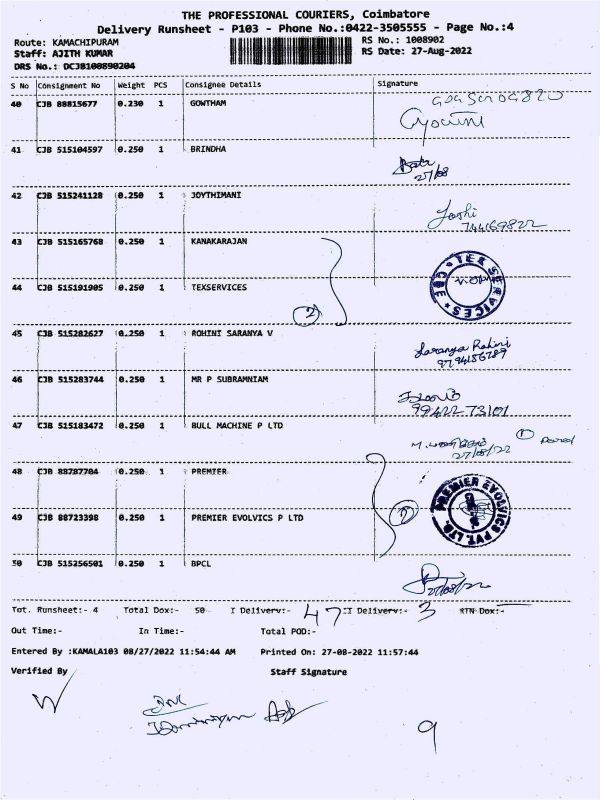 THE PROFESSIONAL COURIERS, Coimbatore
Delivery Runsheet - P103 - Phone No.:0422-3505555 - Page No.:4
Route: KAMACHIPURAM
RS No.: 1008902
Staff: AJITH KUMAR
RS Date: 27-Aug-2022
DRS No.: DCJB100890204
S No Consignment No Weight PCS Consignee Details Signature
40 CJB 88815677 0.230 1 GOWTHAM
41 CJB 515104597 0.250 1 BRINDHA
27/08
42 CJB 515241128 0.250 1 JOYTHIMANI
43 CJB 515165768 0.250 1 KANAKARAJAN
44 CJB 515191905 0.250 1 TEXSERVICES
2
TEX SERVICES * CBE *
45 CJB 515282627 0.250 1 ROHINI SARANYA V
Saranya Rohini
9794156789
46 CJB 515283744 0.250 1 MR P SUBRAMNIAM
99422 73101
47 CJB 515183472 0.250 1 BULL MACHINE P LTD
27/08/22
48 CJB 88787704 0.250 1 PREMIER
PREMIER EVOLVICS PVT. LTD.
49 CJB 88723398 0.250 1 PREMIER EVOLVICS P LTD
50 CJB 515256501 0.250 1 BPCL
27/08/22
Tot. Runsheet:- 4 Total Dox:- 50 I Delivery:- 47 II Delivery:- 3 RTN Dox:-
Out Time:- In Time:- Total POD:-
Entered By :KAMALA103 08/27/2022 11:54:44 AM Printed On: 27-08-2022 11:57:44
Verified By Staff Signature
9